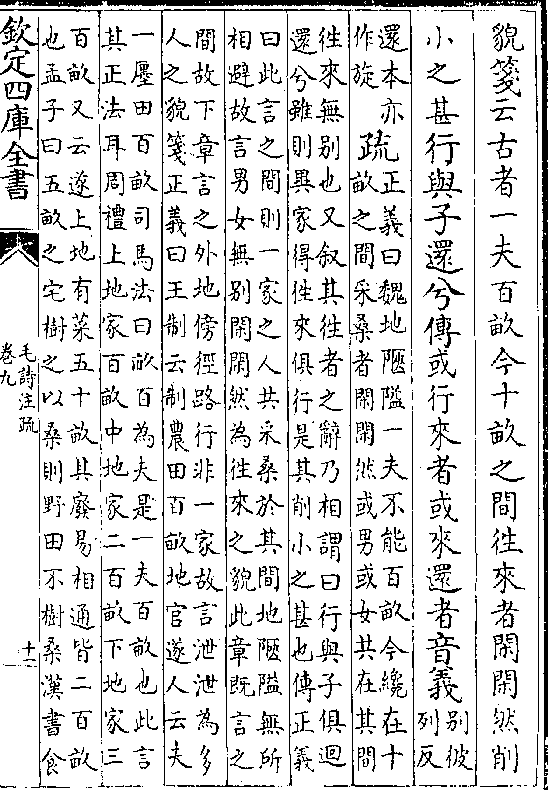 貌箋云古者一夫百畝今十畝之間徃來者閑閑然削
小之甚行與子還兮傳或行來者或來還者音義别彼
列反
還本亦
作旋疏正義曰魏地陿隘一夫不能百畝今纔在十
畝之間采桑者閑閑然或男或女共在其間
徃來無别也又叙其徃者之辭乃相謂曰行與子俱迴
還兮雖則異家得徃來俱行是其削小之甚也傳正義
曰此言之間則一家之人共采桑於其間地陿隘無所
相避故言男女無别閑閑然為徃來之貌此章既言之
間故下章言之外地傍徑路行非一家故言泄泄為多
人之貌箋正義曰王制云制農田百畝地官遂人云夫
一廛田百畝司馬法曰畝百為夫是一夫百畝也此言
其正法耳周禮上地家百畝中地家二百畝下地家三
百畝又云遂上地有菜五十畝其廢易相通皆二百畝
也孟子曰五畝之宅樹之以桑則野田不樹桑漢書食
欽定四庫全書
毛詩注疏
卷九
十一